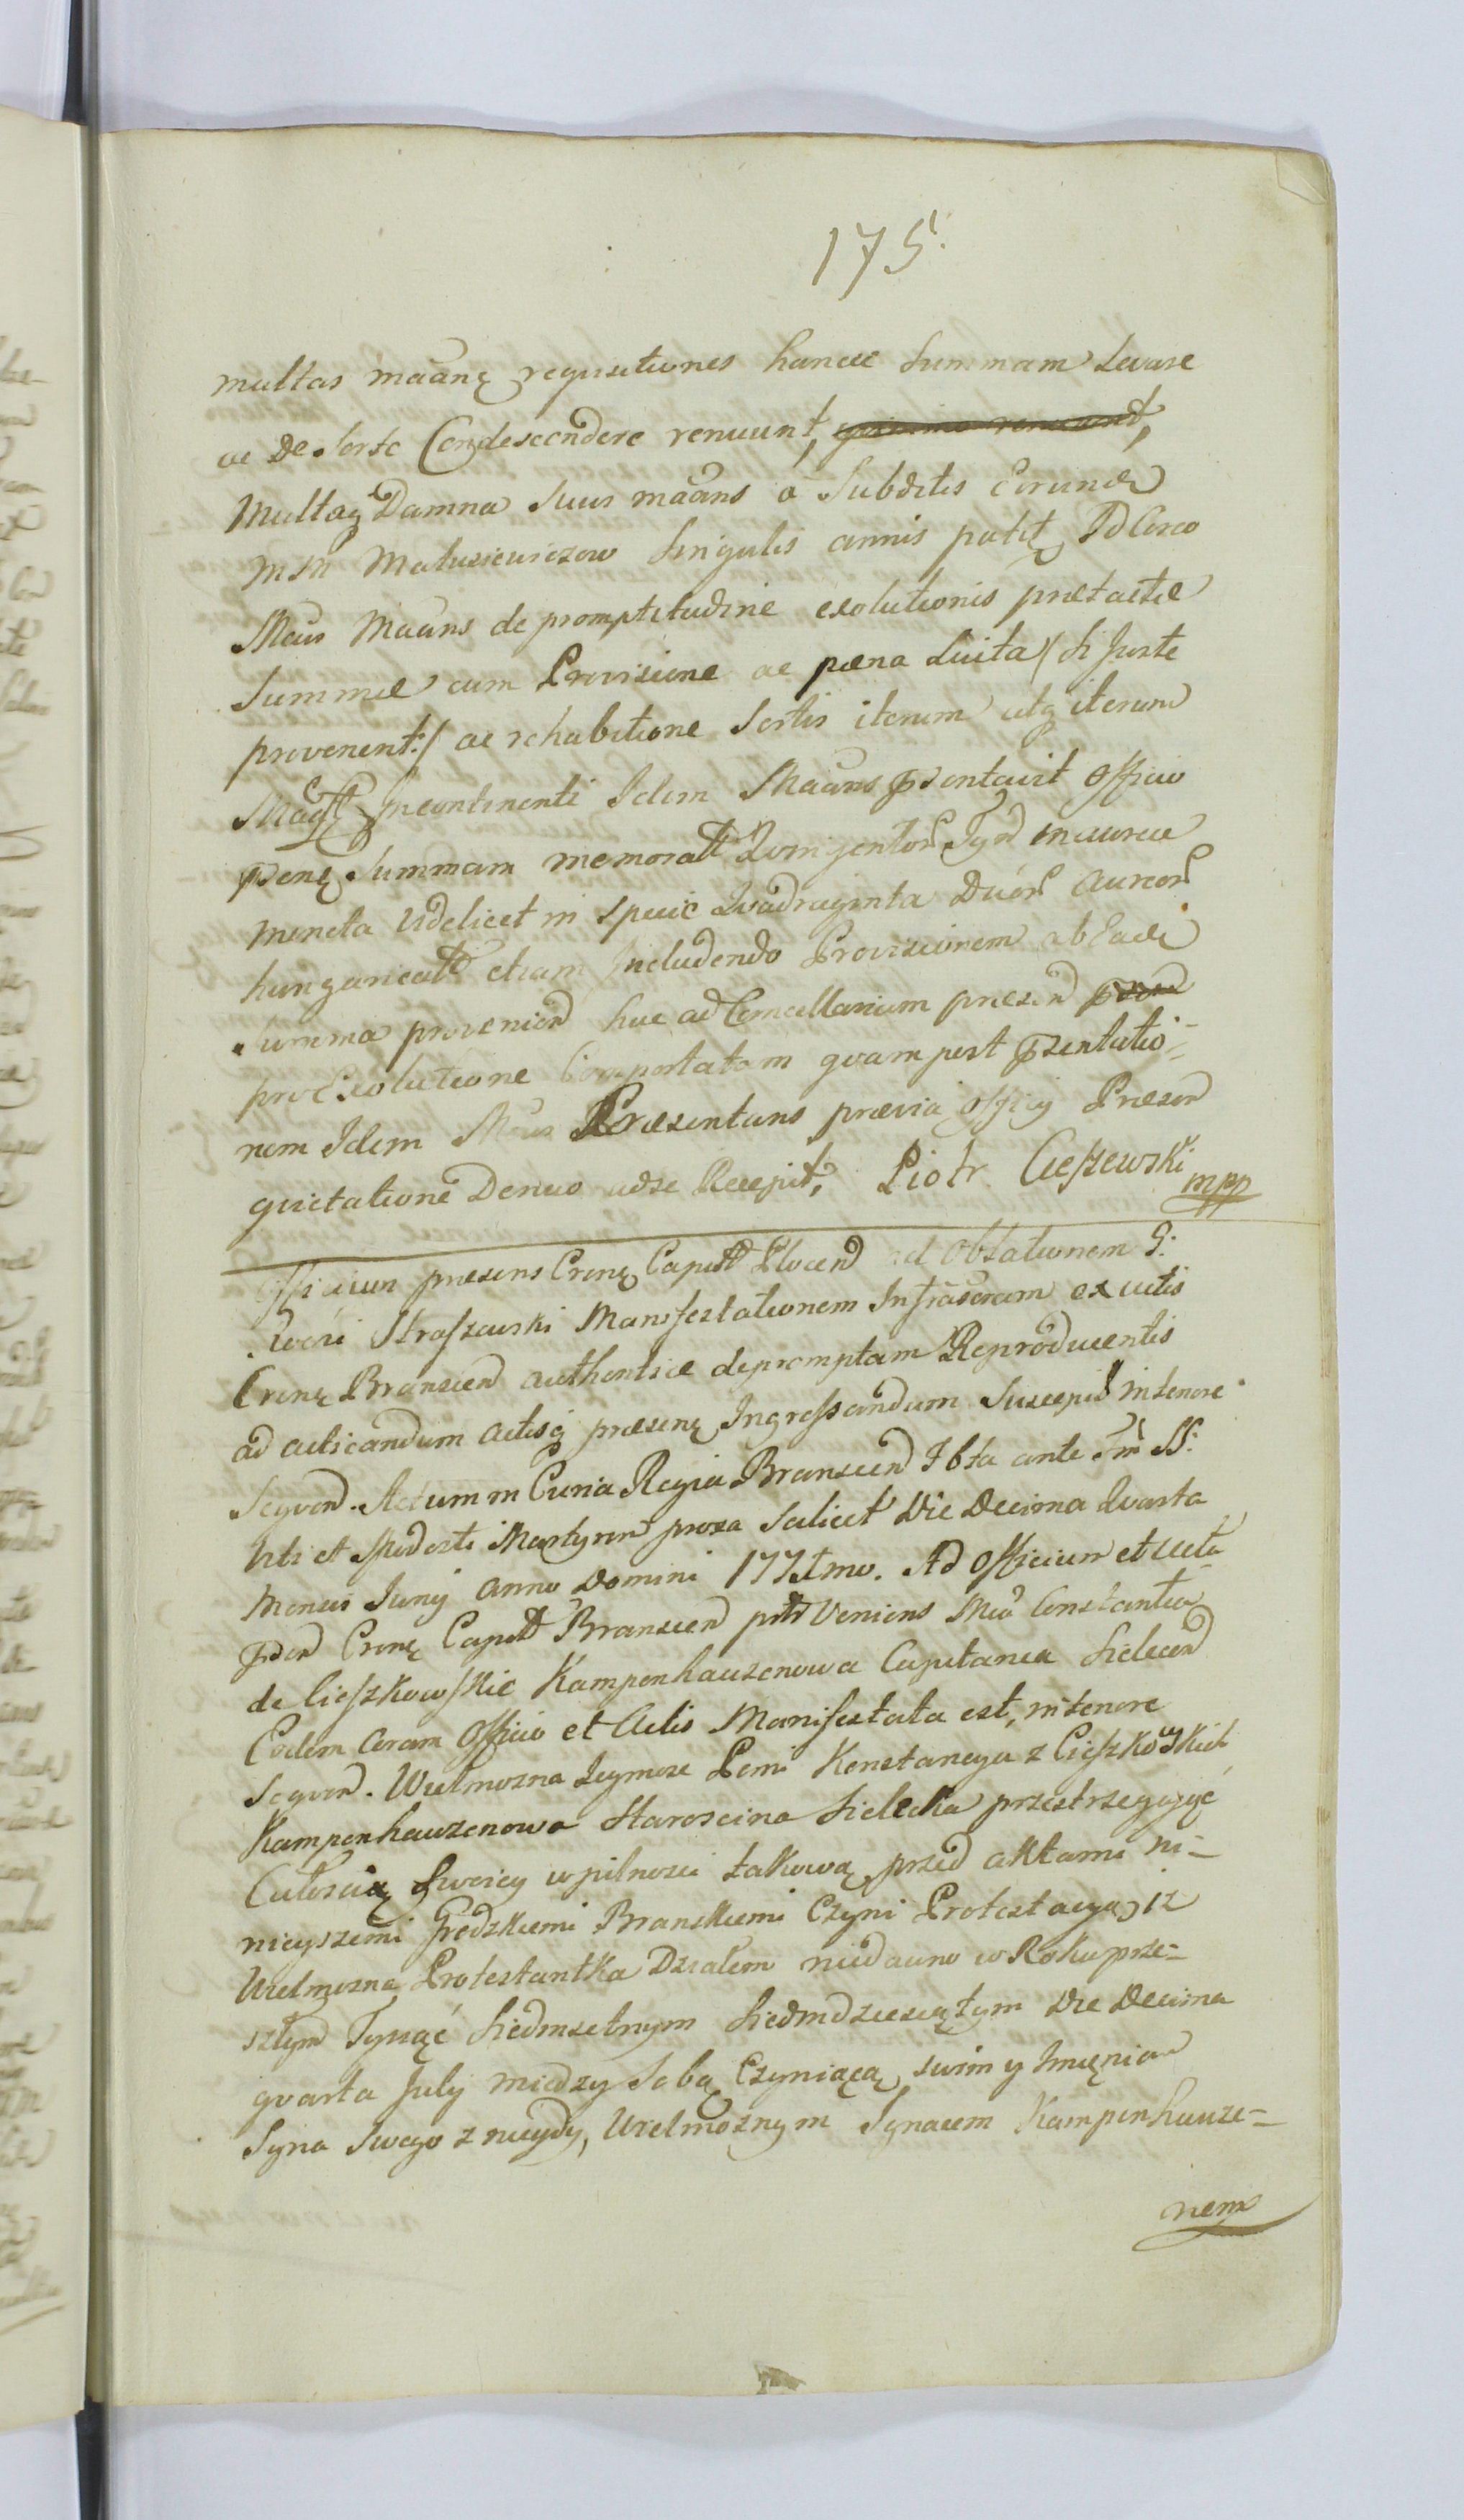 175.
multas mãanę requisitiones hance Summam Levare
ac De Sorte Condescendere renuunt,
Multaq Damna Suus mãans a Subditis Eorund
MM Matusiewiczow Singulis annis patit, Id Circo
Mãns de promptitudine exolutionis prætactæ
Summæ cum Provisione ac pæna Luita /: si Juste
provenerit :/ ac rehabitione Sortis iterum atq iterum
Incontinenti Idem Mãans pñtentavit Officio
pñenę Summam memoratt Quingentor Tynf in aurea
moneta Videlicet in Specie Quadraginta Duor Aureor
hungaricatt etiam Includendo Provisionem ab Eadem
Summa provenien huc ad Cancellariam præsen
pro Exolutione Comportatam quam post pñsentatio=
nem Idem Præsentans prævia officij Præsen
quietatione Denuo ad se Recepit, Piotr Cieszewski mpp
Officium præsens Crenę Capitt Plocen ad Oblationem G:
Rochi Straszewski Manifestationem Infrascram ex actis
Crenę Bransceñ authentice depromptam Reproducentis
ad acticandum actisq præsenę Ingrossandum Suscepit in tenore
Seqven. Actum in Curia Regia Branscen Fbta ante Fm SS:
Viti et Modesti Martyrum proxa Scilicet Die Decima Qvarta
Mensis Junij Anno Domini 1771mo. Ad Officium et acta
pñen Crenę Capitt Branscen pnlr Veniens Mca Constantia
de Cieszkowskie Kampenhauzenowa Capitanea Sielecen
Eodem Coram Officio et Actis Manifestata est, in tenore
Seqven. Wielmozna Jeymosc Pani Konstancya z Cieszkowskich
Kampenhauzenowa Staroscina Sielecka przestrzegając
Całosci Swoiey w pilnosci takową przed aktami ni=
nieyszemi Grodzkiemi Branskiemi Czyni Protestacyą, iz
Wielmozna Protestantka Działem niedawno w Roku prze=
szłym Tysiąc Siedmsetnym Siedmdziesiątym Die Decima
qvarta July między Sobą Czyniącą, swim y Imieniem
Syna Swego z niegdy, Wielmoznym Ignacem Kampenhauze=
nem